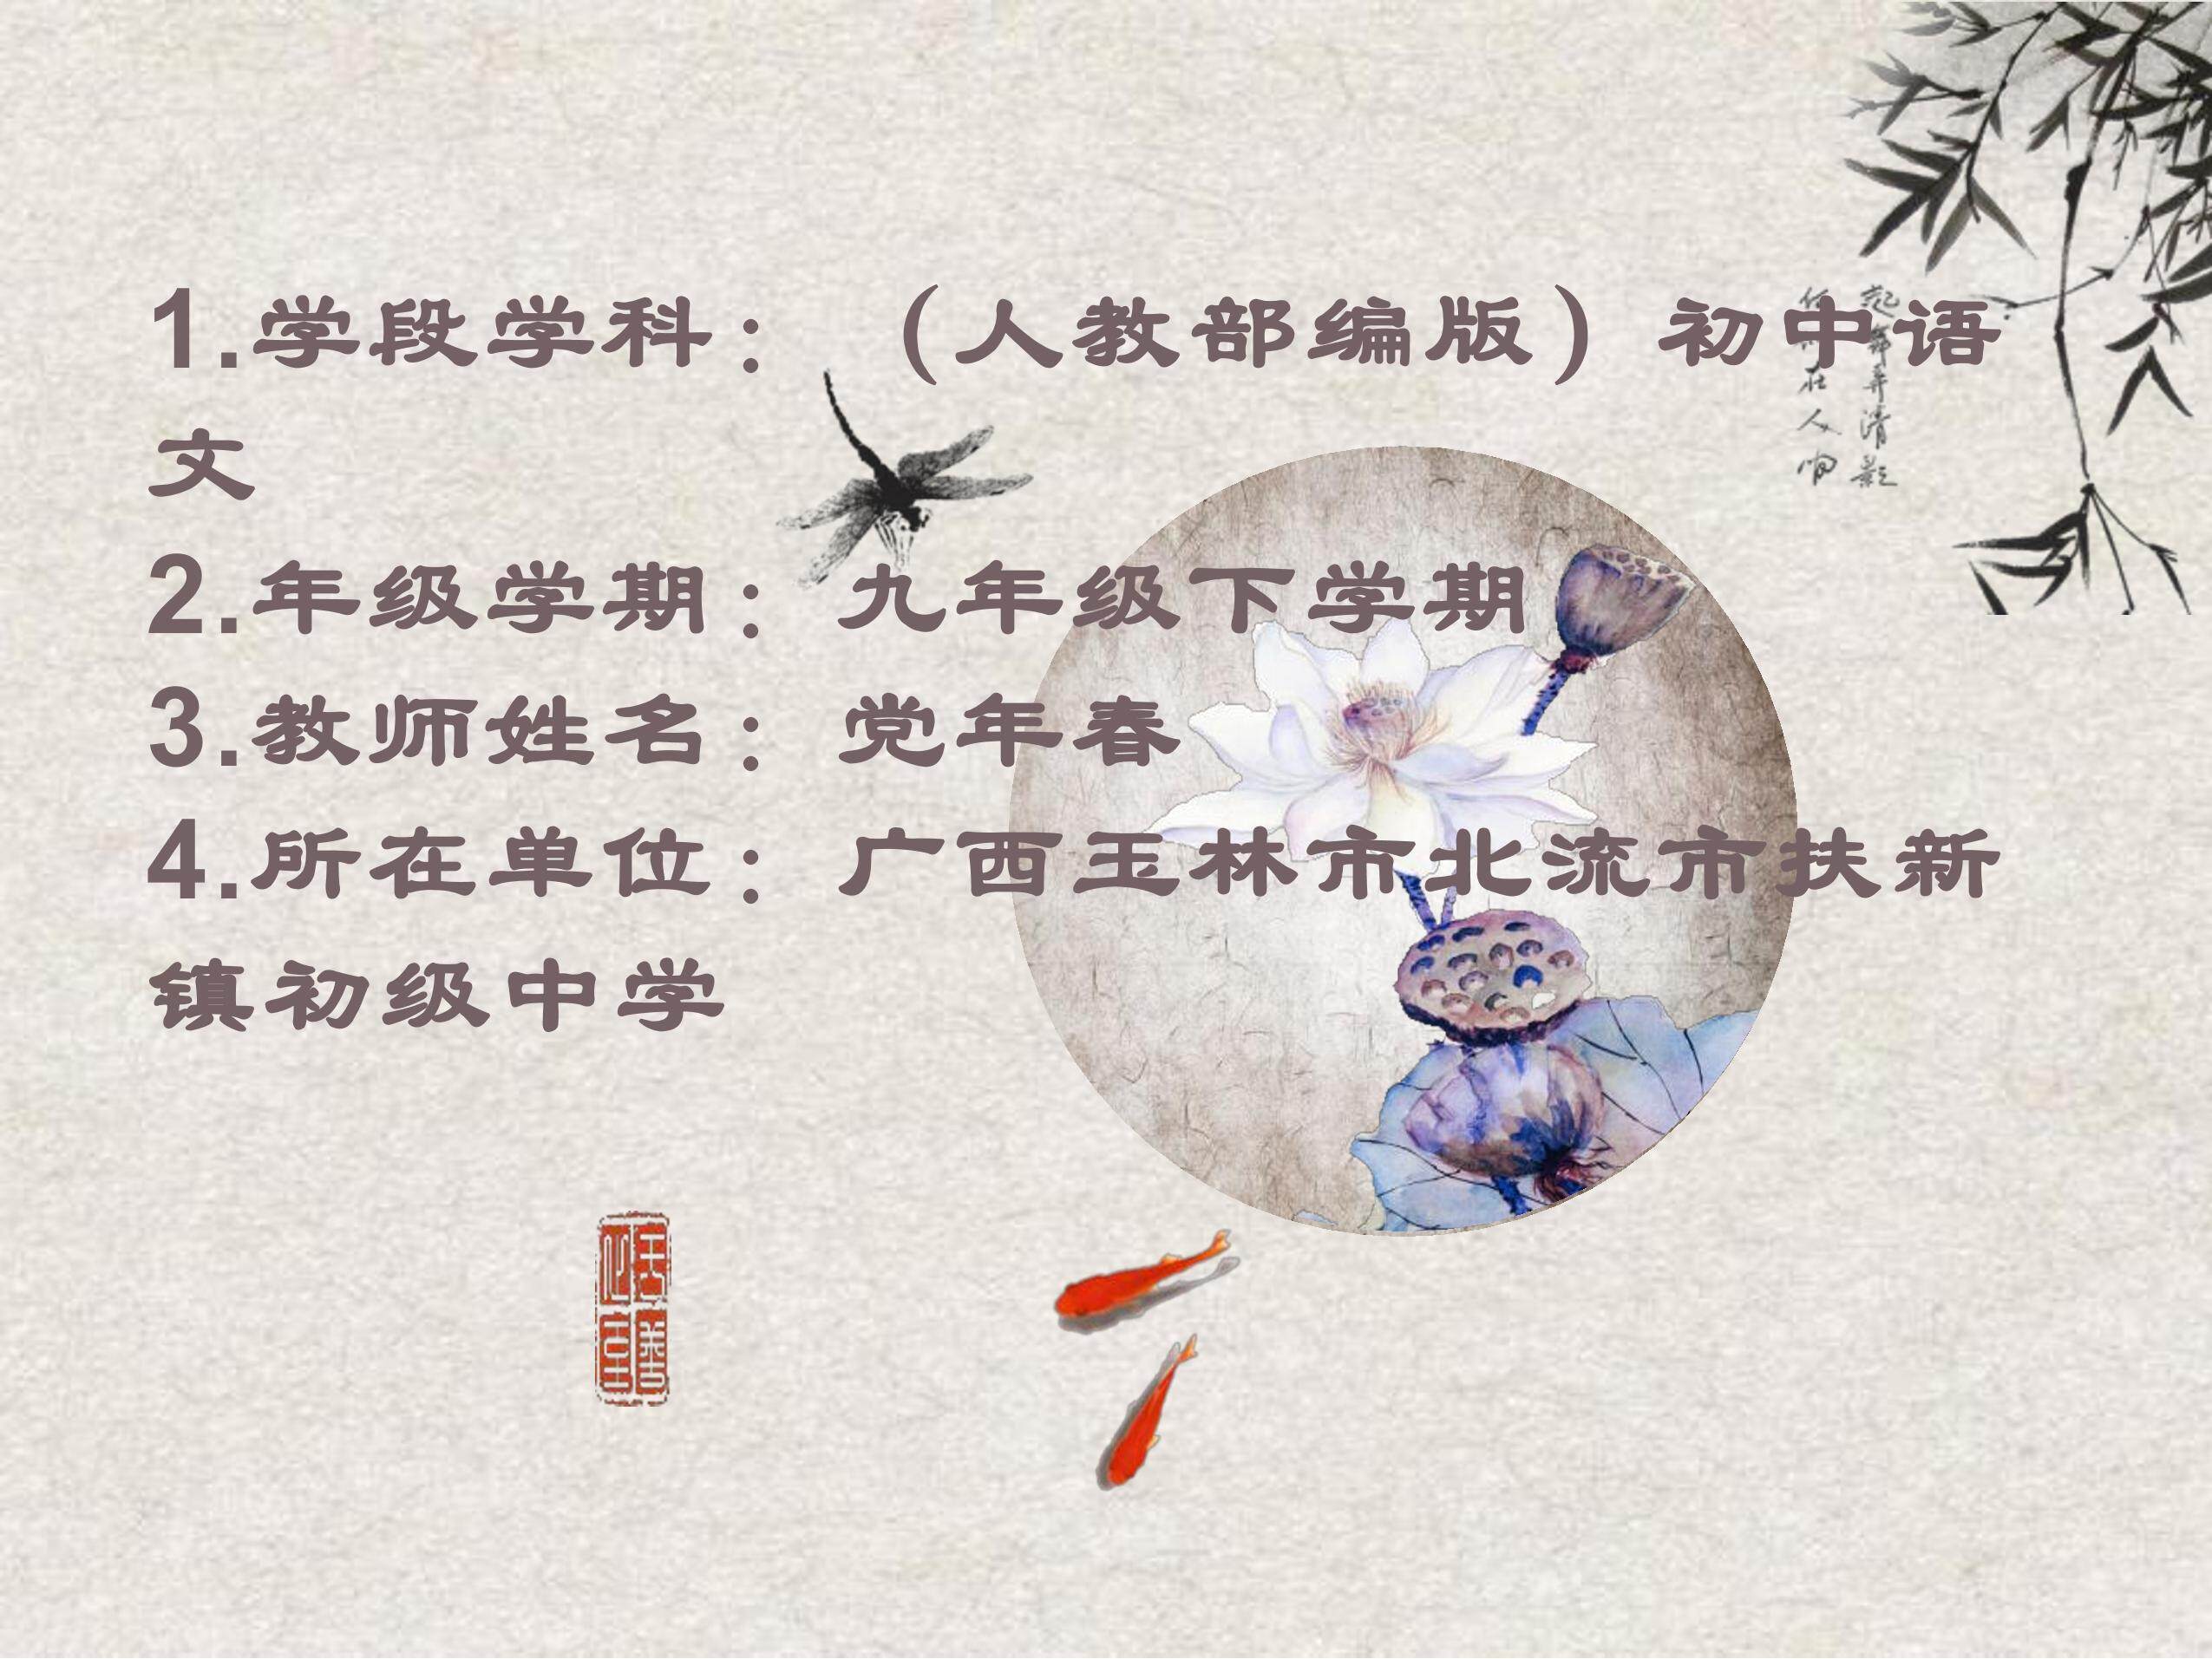 1.学段学科：（人教部编版）初中语
文
2.年级学期：九年级下学期
3.教师姓名：党年春
4.所在单位：广西玉林市北流市扶新
镇初级中学
起舞弄清影
何似在人间